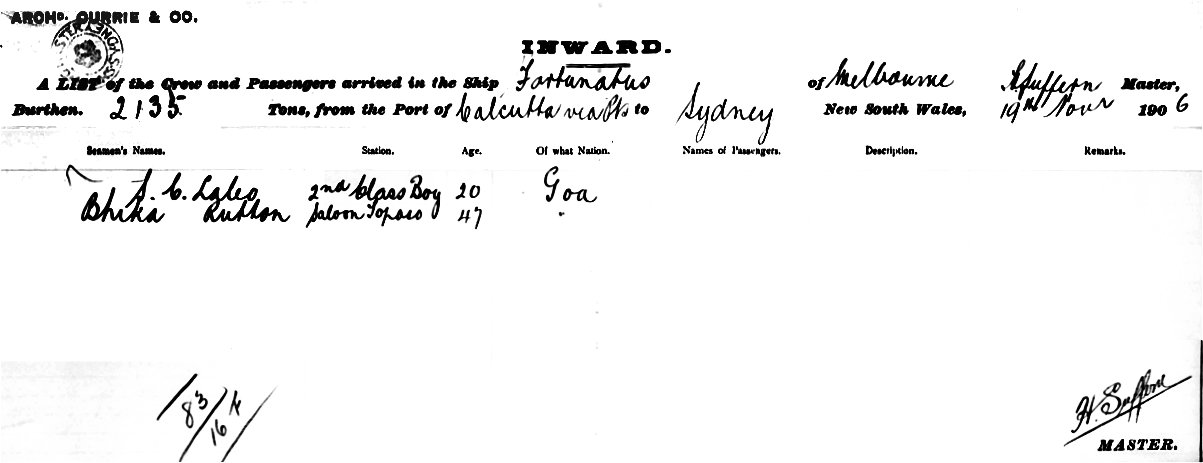 ARCHD. CURRIE & CO.
INWARD.
A LIST of the Crow and Passengers arrived in the Ship Fortunatus of Melbourne H Suffern Master,
Burthen. 2135 Tons, from the Port of Calcutta via Pts to Sydney New South Wales, 19th Novr 1906
Seamen's Names. Station. Age. Of what Nation. Names of Passengers. Description. Remarks.
S. C. Laleo 2nd Class Boy 20 Goa
Bhika Rutton Saloon Topass 47 "
83
16 4
H. Suffern
MASTER.